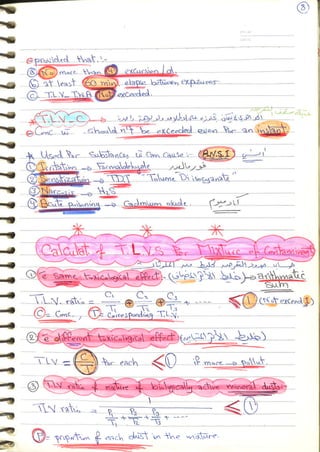 8
provided that:-
ⓐ No more than 4 excursion/d.
ⓑ at least 60 min elapse between exposures
ⓒ TLV-TWA Not exceeded.
TLV-C
Conc. w shouldn't be exceeded even for an instant
* Used for Substances w can cause:- (P.N.S.I)
① Irritation → Formaldehyde
② Sensitization → TDI "Toluene Di Isocyanate"
③ Narcosis → H2S
④ Acute poisoning → Cadmium oxide
Calculat of TLVS for Mixture of Contaminants
① e same toxicological effect → arithmatic
Sum
TLV ratio = C1/T1 + C2/T2 + C3/T3 + .... ≤ 1 (not exceed 1)
C = Conc., T = Corresponding TLV.
② e different toxicological effect
TLV = C/T for each ≤ 1 if more → pollut.
③ TLV ratio of mixture of biologically active mineral dusts
TLV ratio = 1 / P1/T1 + P2/T2 + P3/T3 + .... ≤ 1
P = proportion of each dust in the mixture